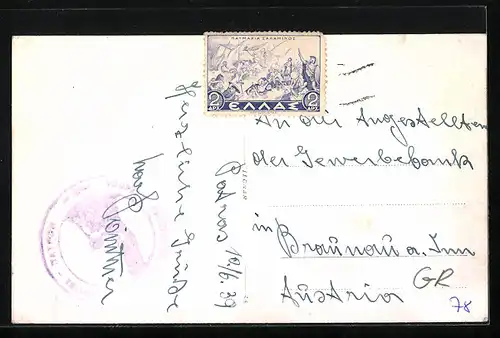 ΝΑΥΜΑΧΙΑ ΣΑΛΑΜΙΝΟΣ
2 ΕΛΛΑΣ 2
Patmos 10/6.39
Herzliche Grüße
An die Angestellten
der Gewerbebank
in
Braunau a. Inn
Austria
GR
78